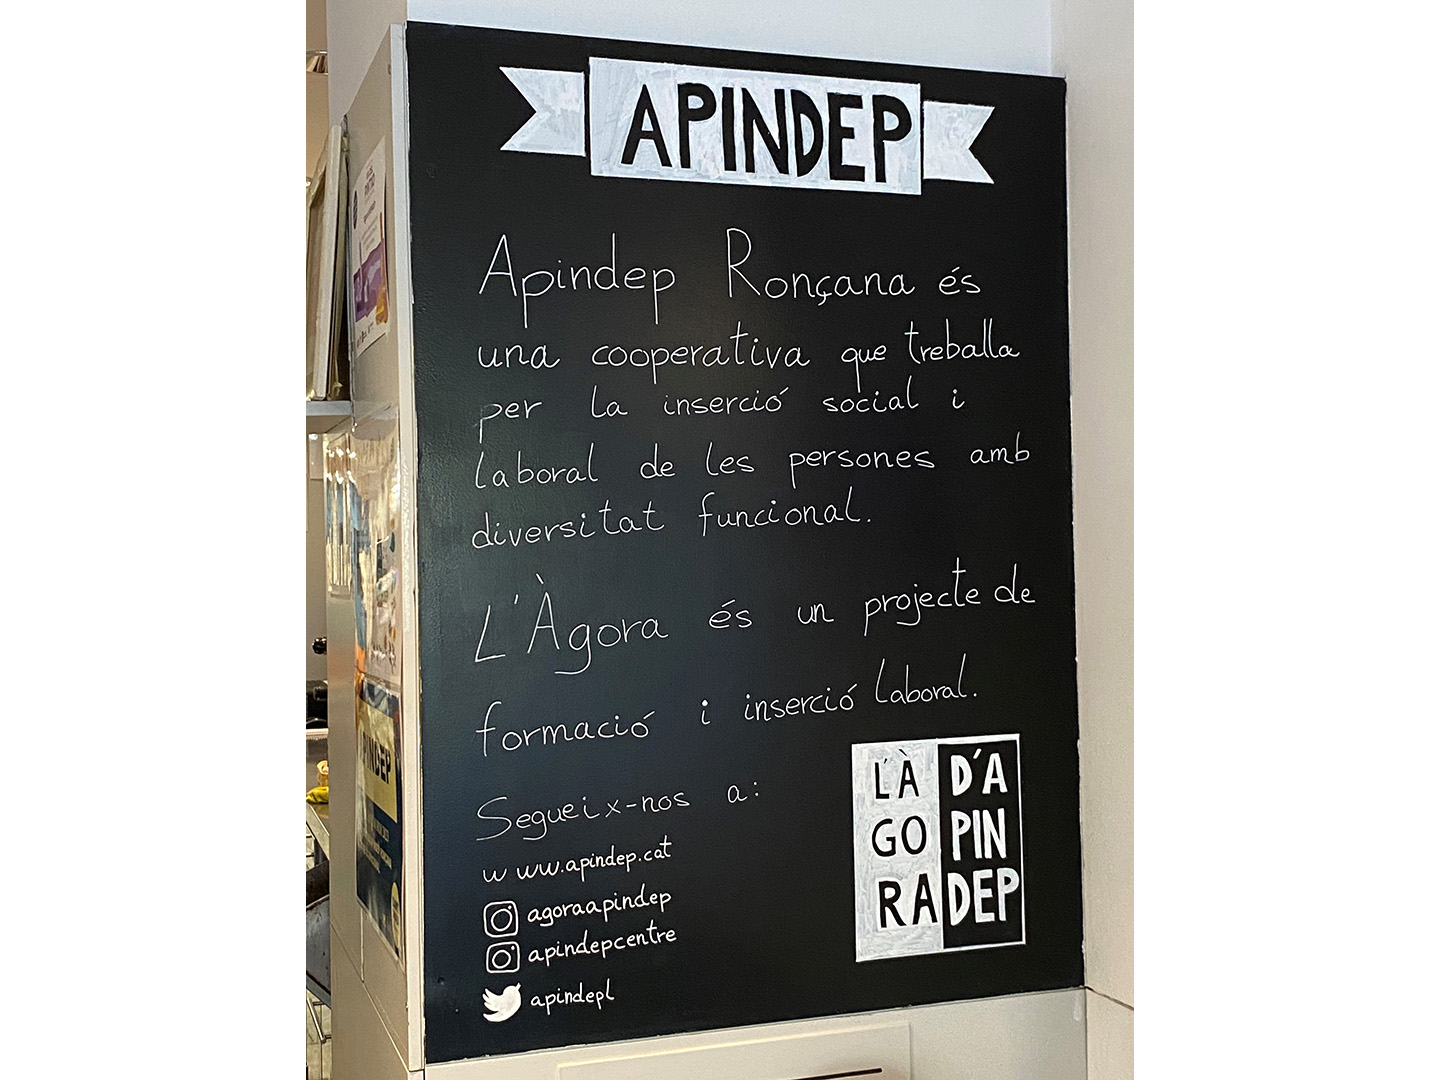 APINDEP
Apindep Ronçana és
una cooperativa que treballa
per la inserció social i
laboral de les persones amb
diversitat funcional.
L'Àgora és un projecte de
formació i inserció laboral.
Segueix-nos a:
www.apindep.cat
agoraapindep
apindepcentre
apindepl
L'À D'A
GO PIN
RA DEP
PINDEP